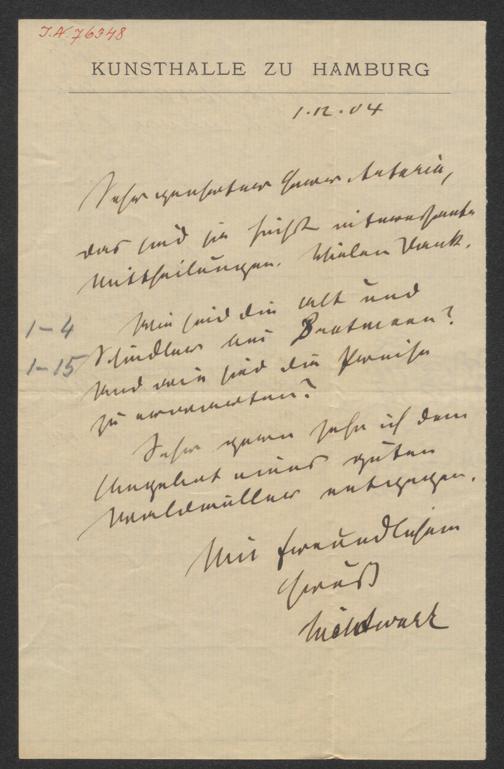 J.N. 76348
KUNSTHALLE ZU HAMBURG
1.12.04
Sehr geehrter Herr
das sind ja höchst interessante
Mittheilungen. Vielen Dank.
1-4 Wie sind die Alt und
1-15 Schindlers bei
Und wie sind die Preise
zu erwarten?
Sehr gern sehe ich dem
Angebot eines guten
Waldmüller entgegen.
Mit freundlichem
Gruß
Lichtwark